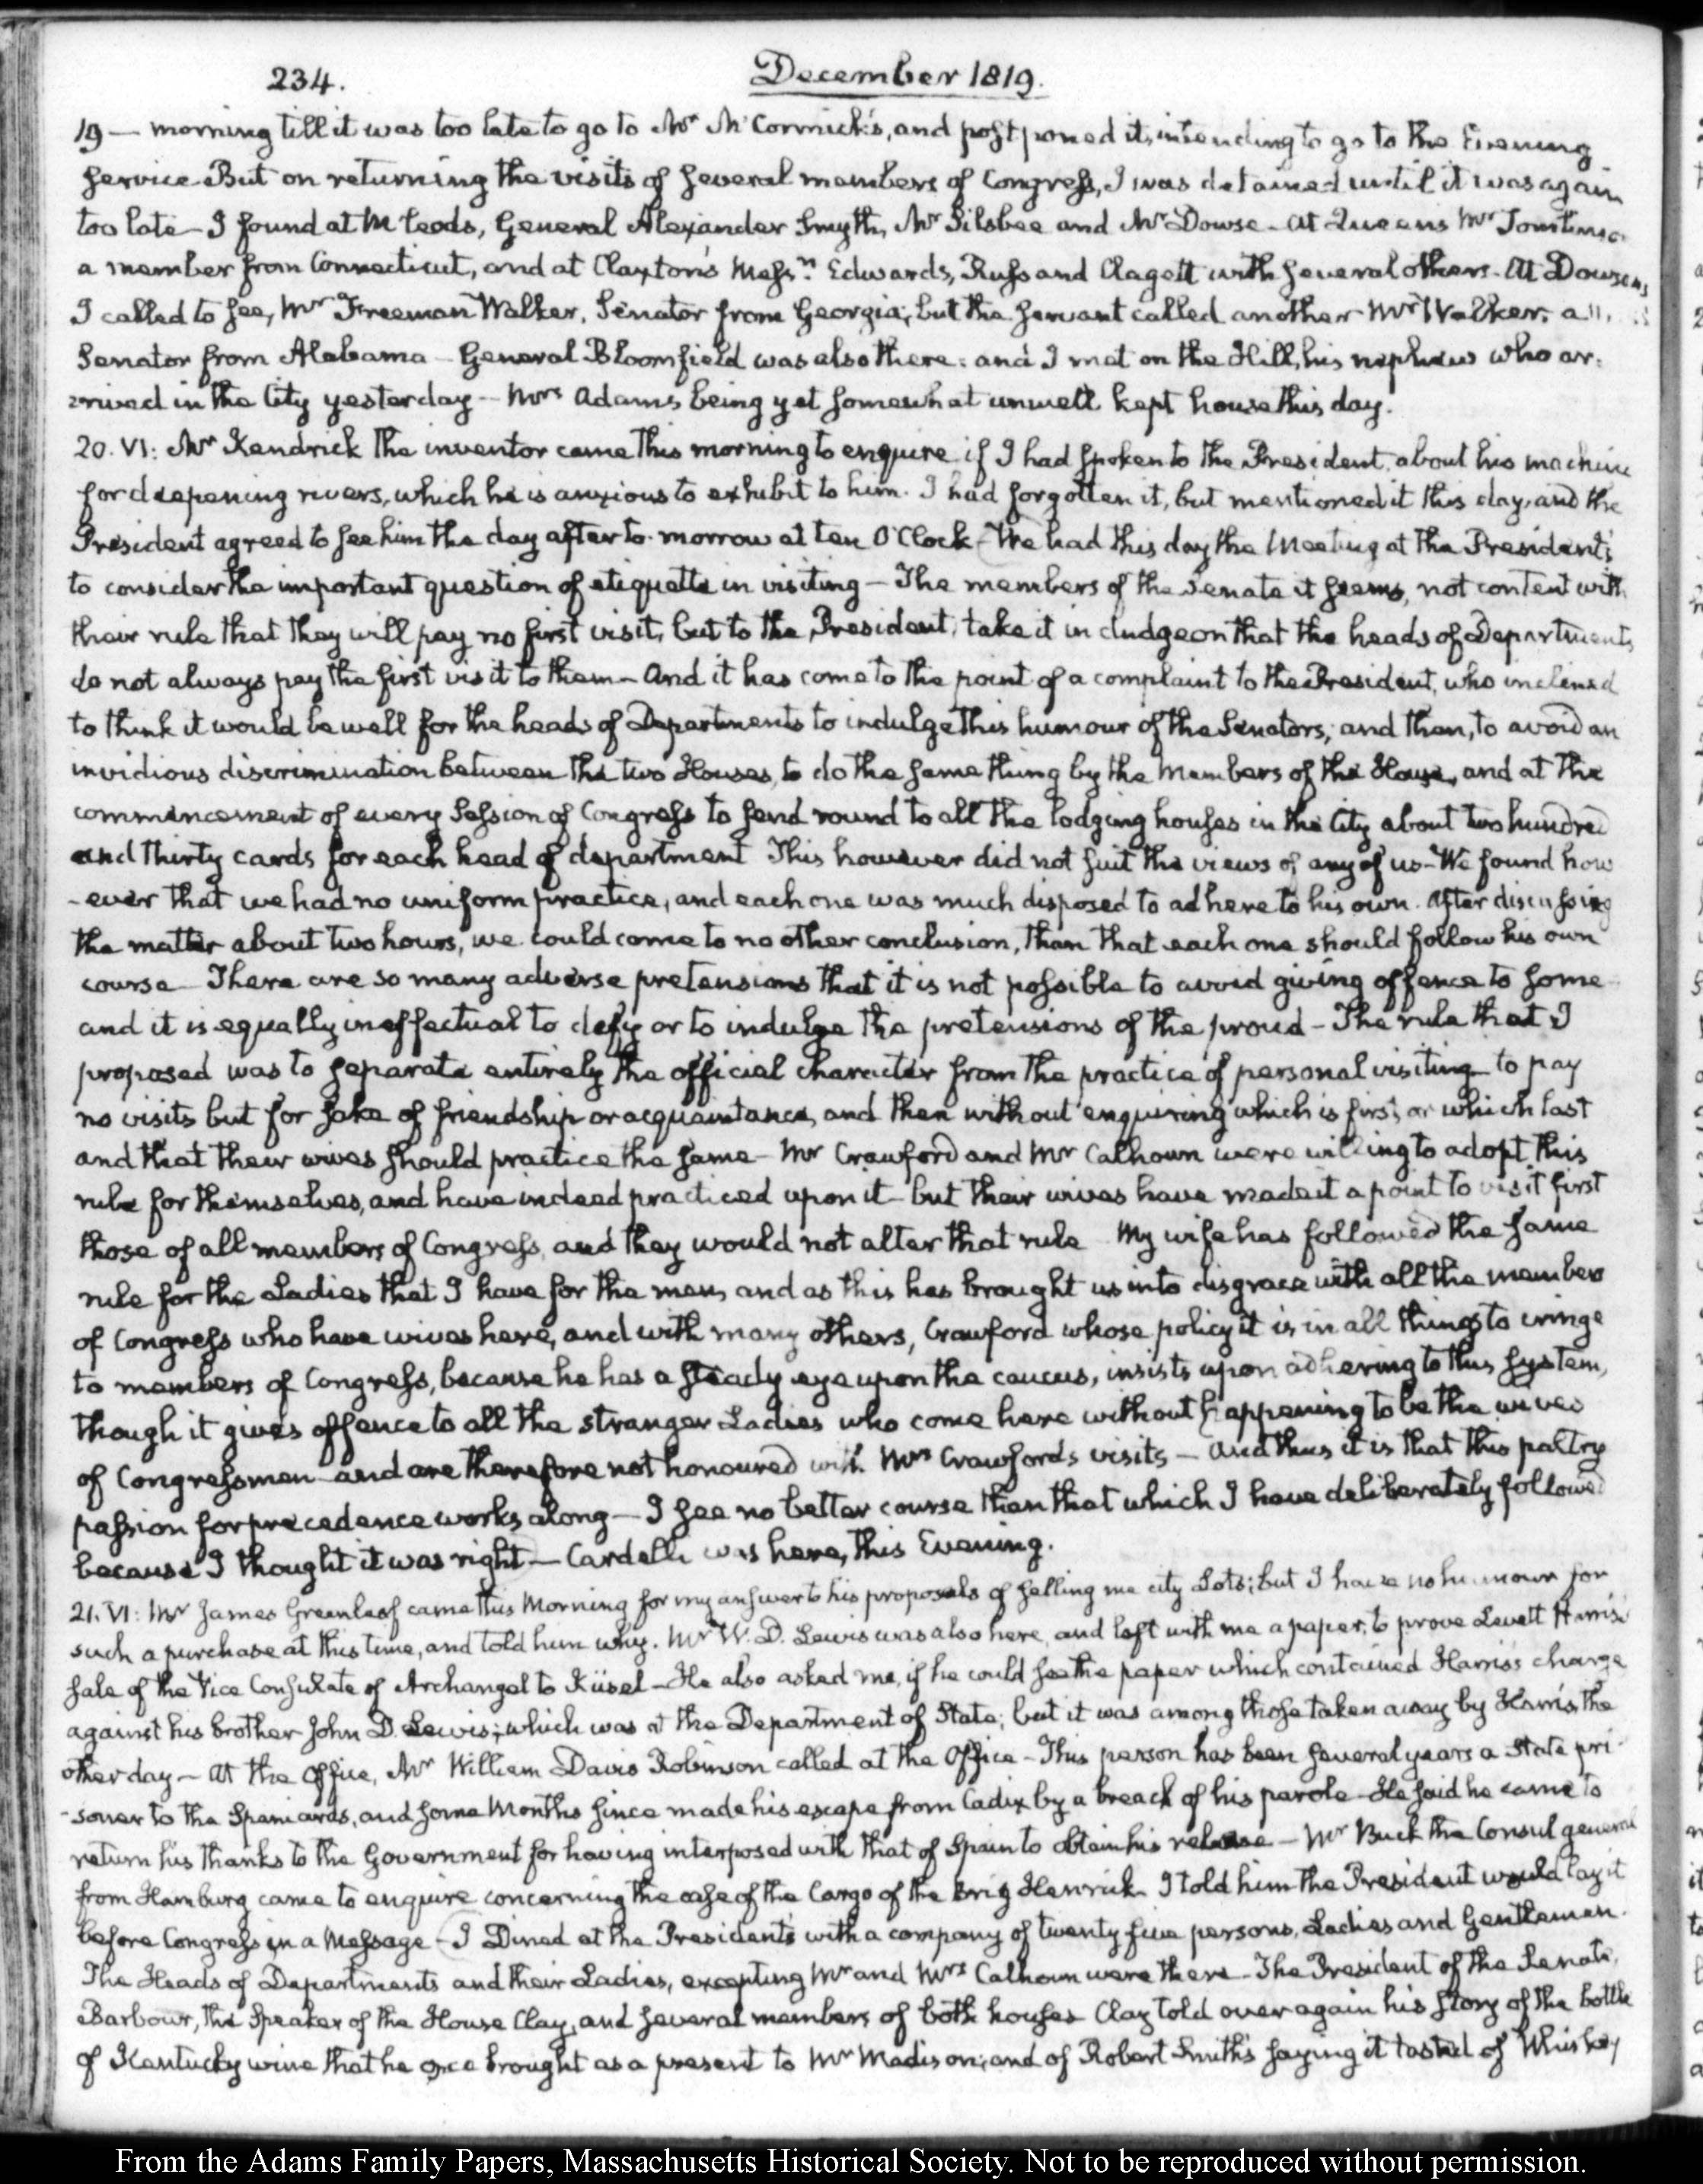 234.
December 1819.
19 — morning till it was too late to go to Mr. McCormick's, and postponed it, intending to go to the Evening
service But on returning the visits of several members of Congress, I was detained until it was again
too late — I found at McLeods, General Alexander Smyth, Mr Silsbee and Mr Dowse — At Queens Mr Tomlinson
a member from Connecticut, and at Claxton's Messrs. Edwards, Russ and Clagett with several others — At Dowson's
I called to see, Mr Freeman Walker, Senator from Georgia; but the servant called another Mr Walker, a
Senator from Alabama — General Bloomfield was also there: and I met on the Hill, his nephew who ar-
-rived in the City yesterday — Mrs Adams being yet somewhat unwell kept house this day.
20. VI: Mr Kendrick the inventor came this morning to enquire if I had spoken to the President, about his machine
for deepening rivers, which he is anxious to exhibit to him. I had forgotten it, but mentioned it this day, and the
President agreed to see him the day after to-morrow at ten O'Clock — We had this day the Meeting at the President's
to consider the important question of etiquette in visiting — The members of the Senate it seems, not content with
their rule that they will pay no first visit, but to the President, take it in dudgeon that the heads of Departments
do not always pay the first visit to them — And it has come to the point of a complaint to the President, who inclined
to think it would be well for the heads of Departments to indulge this humour of the Senators; and then, to avoid an
invidious discrimination between the two Houses, to do the same thing by the Members of the House, and at the
commencement of every Session of Congress to send round to all the lodging houses in the City about two hundred
and thirty cards for each head of department This however did not suit the views of any of us — We found how
-ever that we had no uniform practice, and each one was much disposed to adhere to his own. After discussing
the matter about two hours, we could come to no other conclusion, than that each one should follow his own
course — There are so many adverse pretensions that it is not possible to avoid giving offence to some —
and it is equally ineffectual to defy or to indulge the pretensions of the proud — The rule that I
proposed was to separate entirely the official character from the practice of personal visiting — to pay
no visits but for sake of friendship or acquaintance, and then without enquiring which is first, or which last
and that their wives should practice the same — Mr Crawford and Mr Calhoun were willing to adopt this
rule for themselves, and have indeed practiced upon it — but their wives have made it a point to visit first
those of all members of Congress, and they would not alter that rule My wife has followed the same
rule for the Ladies that I have for the men, and as this has brought us into disgrace with all the members
of Congress who have wives here, and with many others, Crawford whose policy it is in all things to cringe
to members of Congress, because he has a steady eye upon the caucus, insists upon adhering to this system,
though it gives offence to all the stranger Ladies who come here without happening to be the wives
of Congressmen — and are therefore not honoured with Mrs Crawford's visits — And thus it is that this paltry
passion for precedence works along — I see no better course than that which I have deliberately followed
because I thought it was right — Cardelli was here, this Evening.
21. VI: Mr James Greenleaf came this Morning for my answer to his proposals of selling me city Lots; but I have no humour for
such a purchase at this time, and told him why. Mr W. D. Lewis was also here, and left with me a paper, to prove Levett Harris's
sale of the Vice Consulate of Archangel to Küsel — He also asked me, if he could see the paper which contained Harris's charge
against his brother John D. Lewis; which was at the Department of State; but it was among those taken away by Harris, the
other day — At the Office, Mr William Davis Robinson called at the Office — This person has been several years a State pri-
-soner to the Spaniards, and some Months since made his escape from Cadiz by a breach of his parole — He said he came to
return his thanks to the Government for having interposed with that of Spain to obtain his release — Mr Buck the Consul general
from Hamburg came to enquire concerning the case of the Cargo of the Brig Henrick I told him the President would lay it
before Congress in a Message — I Dined at the President's with a company of twenty five persons, Ladies and Gentlemen.
The Heads of Departments and their Ladies, excepting Mr and Mrs Calhoun were there — The President of the Senate,
Barbour, the Speaker of the House Clay, and several members of both houses Clay told over again his story of the bottle
of Kentucky wine that he once brought as a present to Mr Madison; and of Robert Smith's saying it tasted of Whiskey
From the Adams Family Papers, Massachusetts Historical Society. Not to be reproduced without permission.